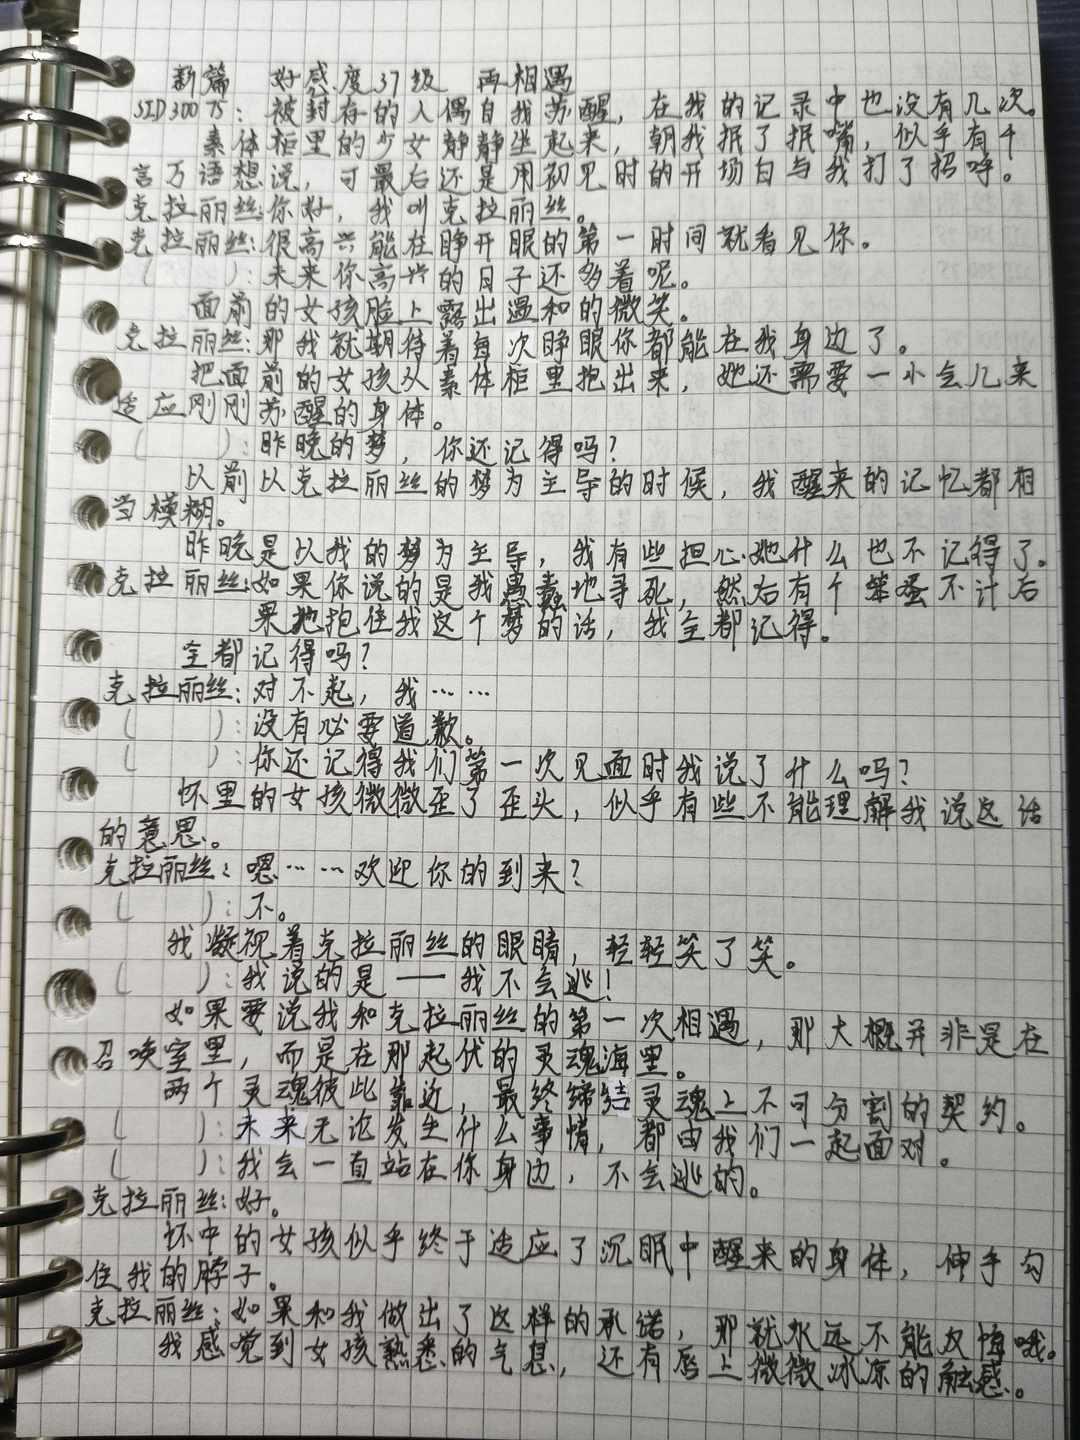 新篇 好感度37级 再相遇
SID30075：被封存的人偶自我苏醒，在我的记录中也没有几次。
素体柜里的少女静静坐起来，朝我抿了抿嘴，似乎有千
言万语想说，可最后还是用初见时的开场白与我打了招呼。
克拉丽丝：你好，我叫克拉丽丝。
克拉丽丝：很高兴能在睁开眼的第一时间就看见你。
（ ）：未来你高兴的日子还多着呢。
面前的女孩脸上露出温和的微笑。
克拉丽丝：那我就期待着每次睁眼你都能在我身边了。
把面前的女孩从素体柜里抱出来，她还需要一小会儿来
适应刚刚苏醒的身体。
（ ）：昨晚的梦，你还记得吗？
以前以克拉丽丝的梦为主导的时候，我醒来的记忆都相
当模糊。
昨晚是以我的梦为主导，我有些担心她什么也不记得了。
克拉丽丝：如果你说的是我愚蠢地寻死，然后有个笨蛋不计后
果地抱住我这个梦的话，我全都记得。
全都记得吗？
克拉丽丝：对不起，我……
（ ）：没有必要道歉。
（ ）：你还记得我们第一次见面时我说了什么吗？
怀里的女孩微微歪了歪头，似乎有些不能理解我说这话
的意思。
克拉丽丝：嗯……欢迎你的到来？
（ ）：不。
我凝视着克拉丽丝的眼睛，轻轻笑了笑。
（ ）：我说的是——我不会逃！
如果要说我和克拉丽丝的第一次相遇，那大概并非是在
召唤室里，而是在那起伏的灵魂海里。
两个灵魂彼此靠近，最终缔结灵魂上不可分割的契约。
（ ）：未来无论发生什么事情，都由我们一起面对。
（ ）：我会一直站在你身边，不会逃的。
克拉丽丝：好。
怀中的女孩似乎终于适应了沉眠中醒来的身体，伸手勾
住我的脖子。
克拉丽丝：如果和我做出了这样的承诺，那就永远不能反悔哦。
我感觉到女孩熟悉的气息，还有唇上微微冰凉的触感。